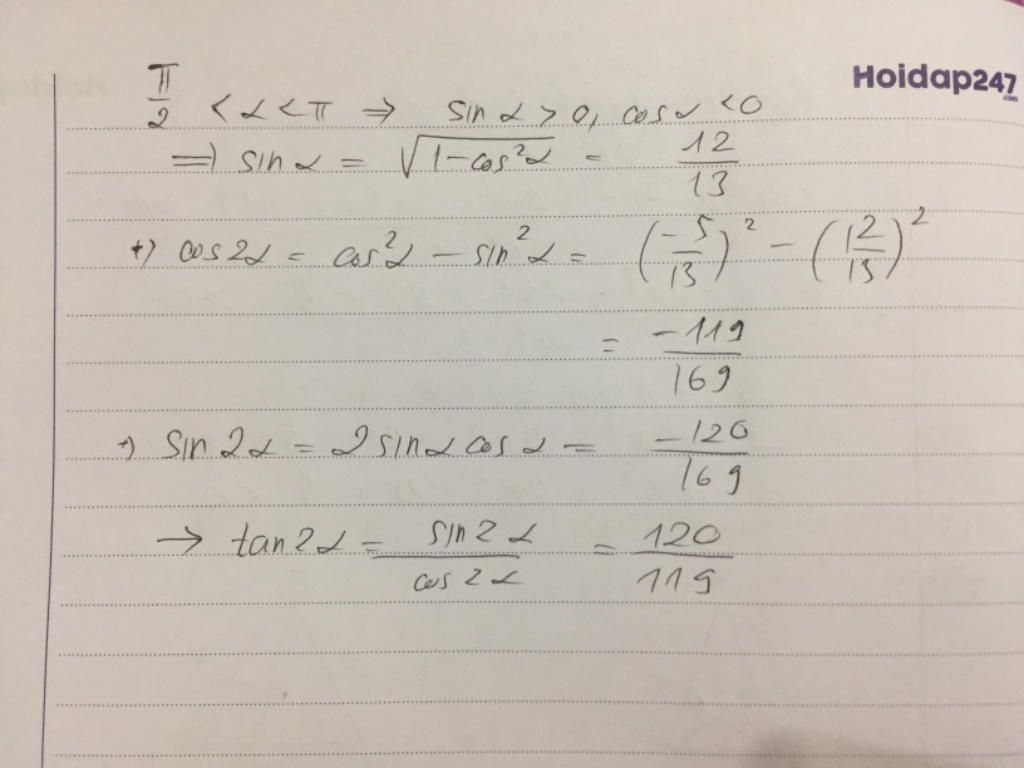 Hoidap247.com
π/2 < α < π ⇒ sin α > 0, cos α < 0
⇒ sin α = √(1 - cos²α) = 12/13
+) cos2α = cos²α - sin²α = (-5/13)² - (12/13)²
= -119/169
+) sin 2α = 2 sinα cos α = -120/169
→ tan2α = sin2α/cos2α = 120/119